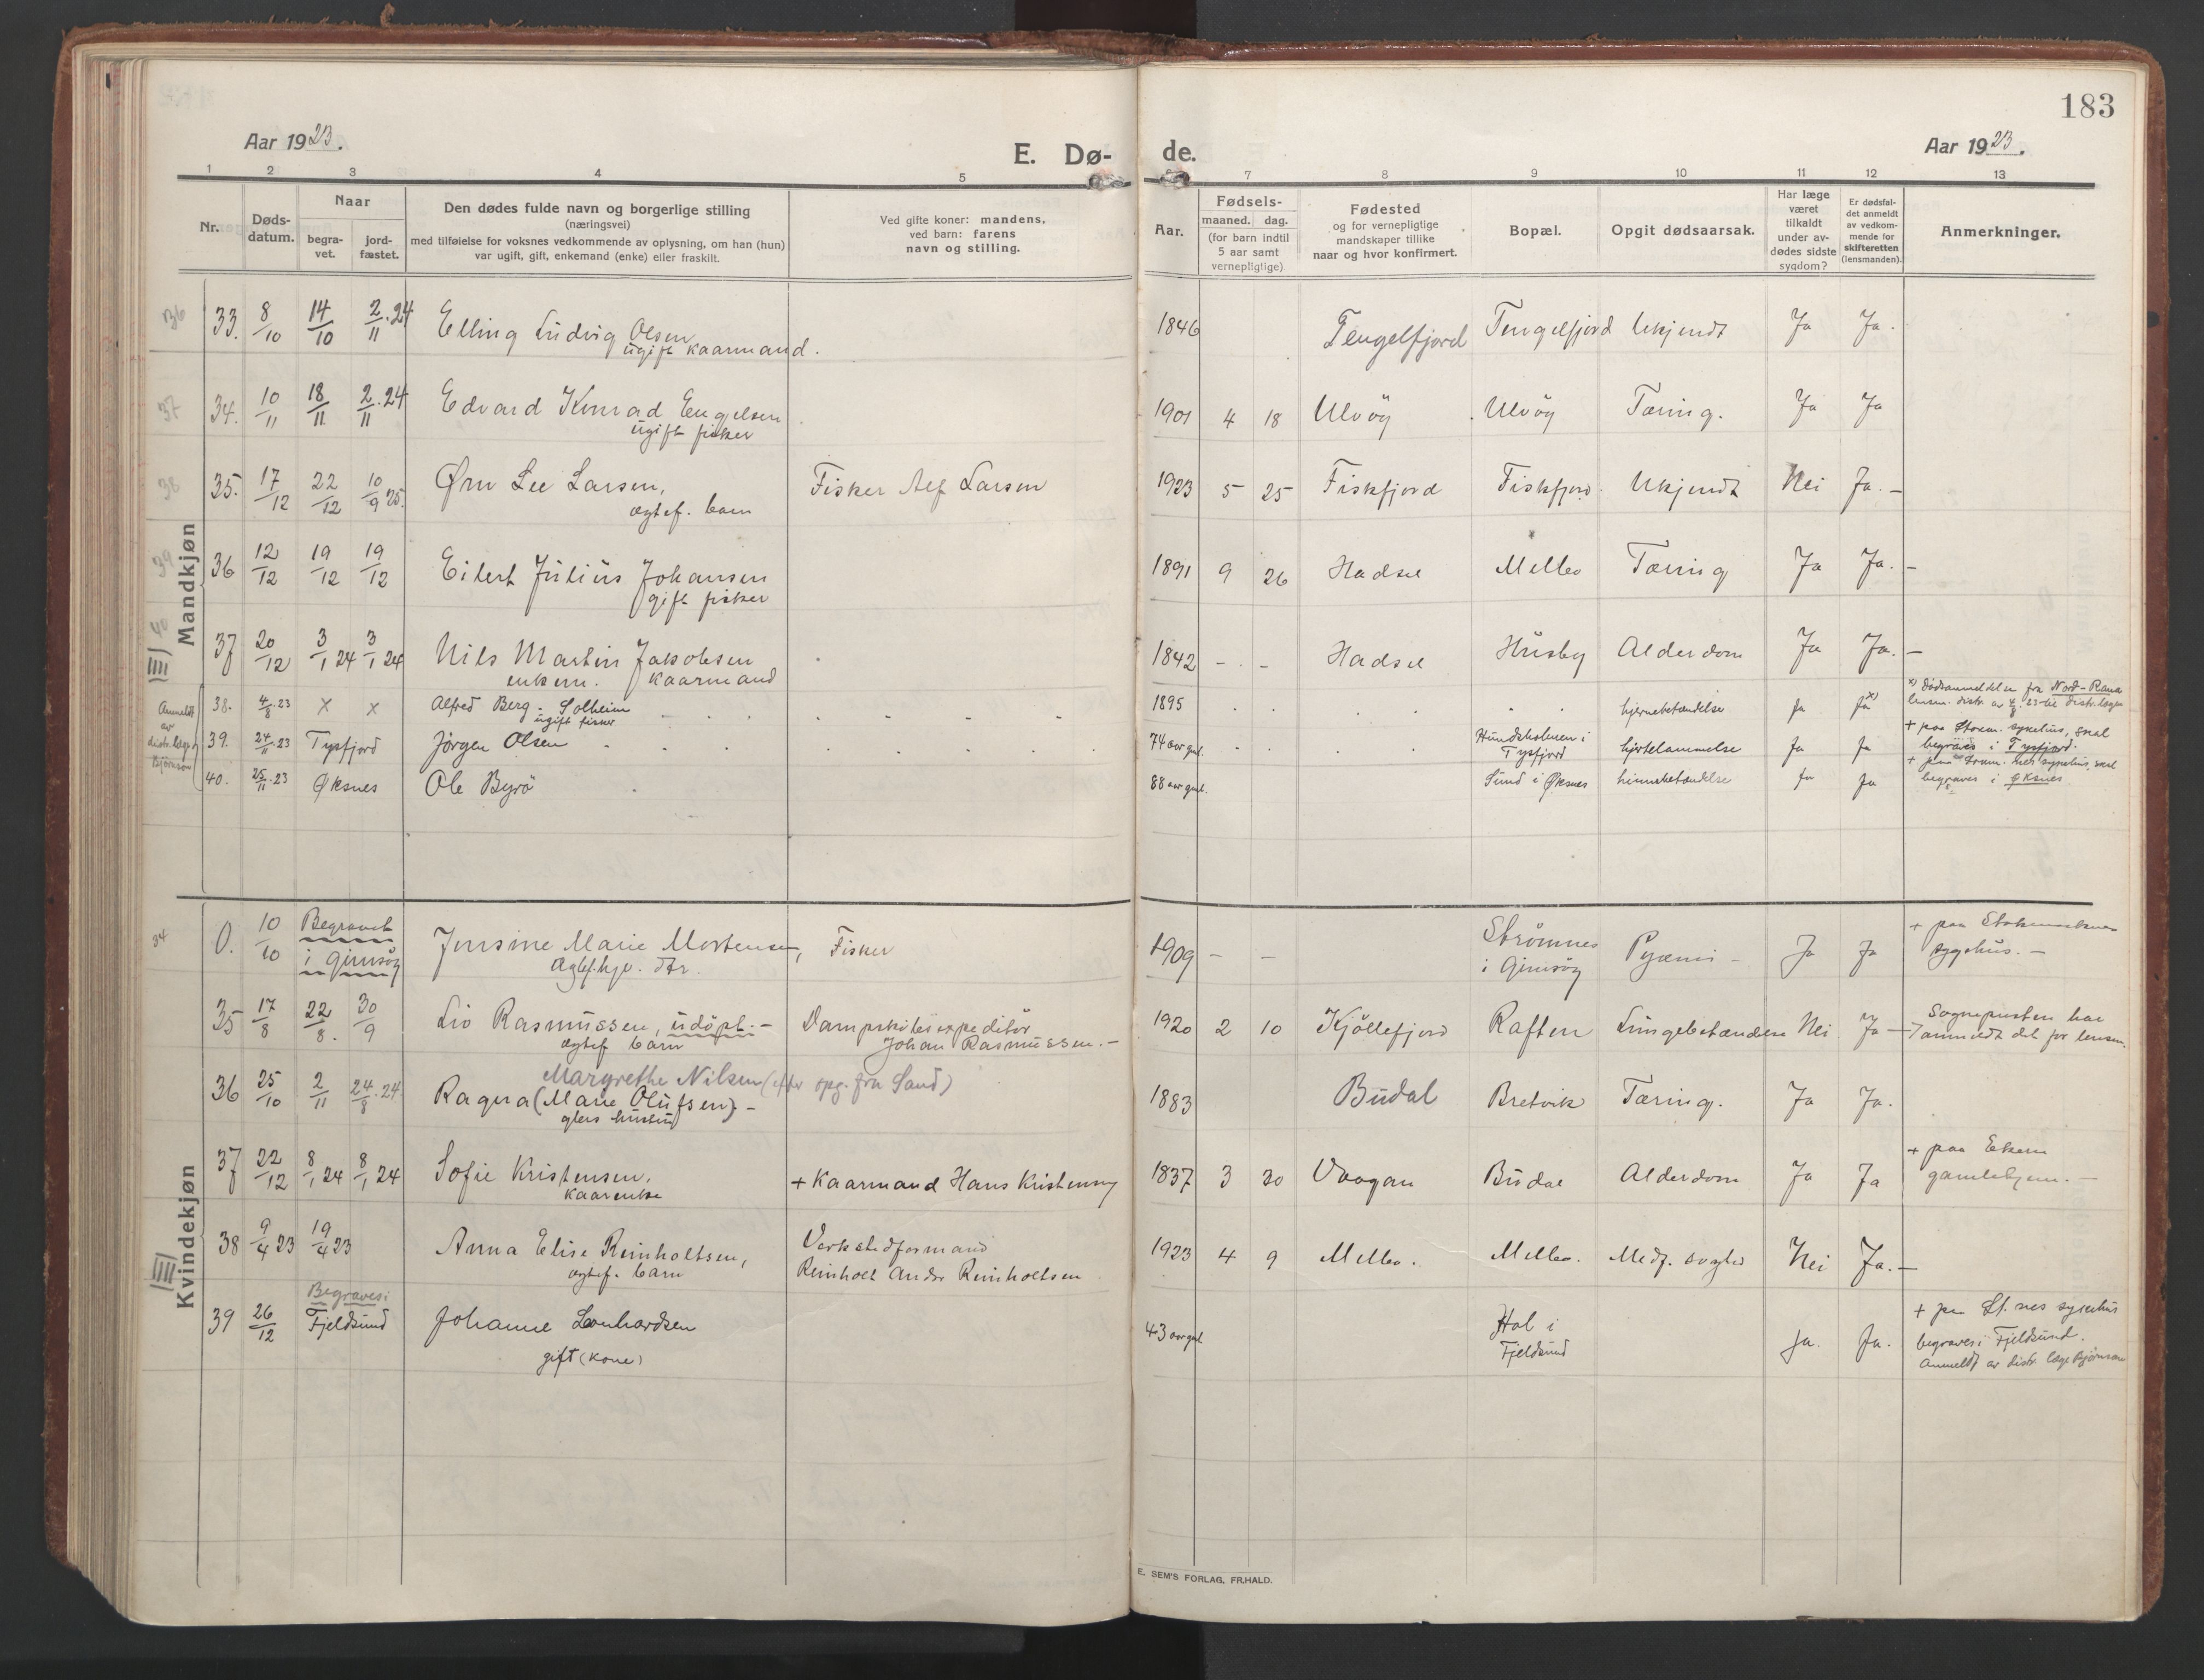 183
Aar 1923.
E. Dø-
de.
Aar 1923.
1 2 3 4 5 7 8 9 10 11 12 13
Nr.
Døds-
datum.
Naar
begra-
vet.
jord-
fæstet.
Den dødes fulde navn og borgerlige stilling
(næringsvei)
med tilføielse for voksnes vedkommende av oplysning, om han (hun)
var ugift, gift, enkemand (enke) eller fraskilt.
Ved gifte koner: mandens,
ved barn: farens
navn og stilling.
Aar.
Fødsels-
maaned. dag.
(for barn indtil
5 aar samt
vernepligtige)
Fødested
og for vernepligtige
mandskaper tillike
naar og hvor konfirmert.
Bopæl.
Opgit dødsaarsak.
Har læge
været
tilkaldt
under av-
dødes sidste
sygdom?
Er dødsfal-
det anmeldt
av vedkom-
mende for
skifteretten
(lensmanden).
Anmerkninger.
Mandkjøn
36 33. 8/10 14/10 2/11.24 Elling Ludvig Olsen 1846 Tengelfjord Tengelfjord Ukjendt Ja Ja.
ugift kaarmand.
37 34. 10/11 18/11 2/11.24 Edvard Konrad Engelsen 1901 4 18 Ulvöy Ulvöy Tæring. Ja Ja
ugift fisker
38 35. 17/12 22/12 10/9 25. Ørn Lee Larsen, Fisker Alf Larsen 1923 5 25 Fiskfjord Fiskfjord Ukjendt Nei Ja. –
ægtef. barn
39 36 12/12 19/12 19/12 Eilert Julius Johansen 1891 9 26 Hadsel Melbo Tæring Ja Ja. –
gift fisker
40 37 20/12 3/1 24 3/1 24 Nils Martin Jakobsen 1842 – - – Hadsel Husby Alderdom Ja Ja. –
enkem. kaarmand
Anmeldt
av
distr. læge
Björnson
38. 4/8.23 x x Alfred Berg-Solheim 1895 hjernebetændelse Ja Ja x)
ugift fisker
x) Dødsanmeldelse fra Nord-Rana
lensm. distr. av 4/8.23 til distr. lægen
39. 24/11.23 Tysfjord Jörgen Olsen 74 aar gml. Hundsholmen i
Tysfjord hjertelammelse Ja Ja
+ paa Stokm. sykehus, skal
begraves i Tysfjord.
40. 25/11.23 Øksnes Ole Byrö 88 aar gml. Sund i Øksnes hinnebetændelse Ja Ja
begraves i Øksnes
Kvindekjøn
34 0. 10/10 Begravet
i Gimsöy Jensine Marie Mortensen, Fisker 1909 – – Strömnes
i Gimsöy Pyæmi – Ja Ja
+ paa Stokmarknes
sygehus. –
35 17/8 22/8. 30/9 Liv Rasmussen, udöpt. – Dampskibsexpeditör 1920 2 10 Kjöllefjord Raften Lungebetændelse Nei Ja –
ægtef barn Johan Rasmussen. –
Sognepresten har
anmeldt det for lensm.
Margrethe Nilsen (efter opg. fra Sand)
36 25/10 2/11 24/8.24 Ragna (Marie Olufsen) – 1883 Budal Bretvik Tæring. Ja Ja.
37 22/12 8/1 24 8/1 24 Sofie Kristensen, + Kaarmand Hans Kristensen 1837 3 30 Vaagan Budal Alderdom Ja Ja
kaarenke
+ paa Ekren
gamlehjem. –
38 9/4 23 19/4 23 Anna Elise Reinholtsen, Verkstedformand 1923 4 9 Melbo. Melbo. Medf. svaghed Nei Ja. –
ægtef. barn Reinholt Andor Reinholtsen
39 26/12 Begraves i
Fjeldsund Johanne Leonhardsen 43 aar gml Hol i
Fjeldsund Ja. Ja.
gift (kone)
+ paa St.nes sykehus
begraves i Fjeldsund.
Anmeldt av distr. læge Björnson
E. SEM'S FORLAG, FR.HALD.